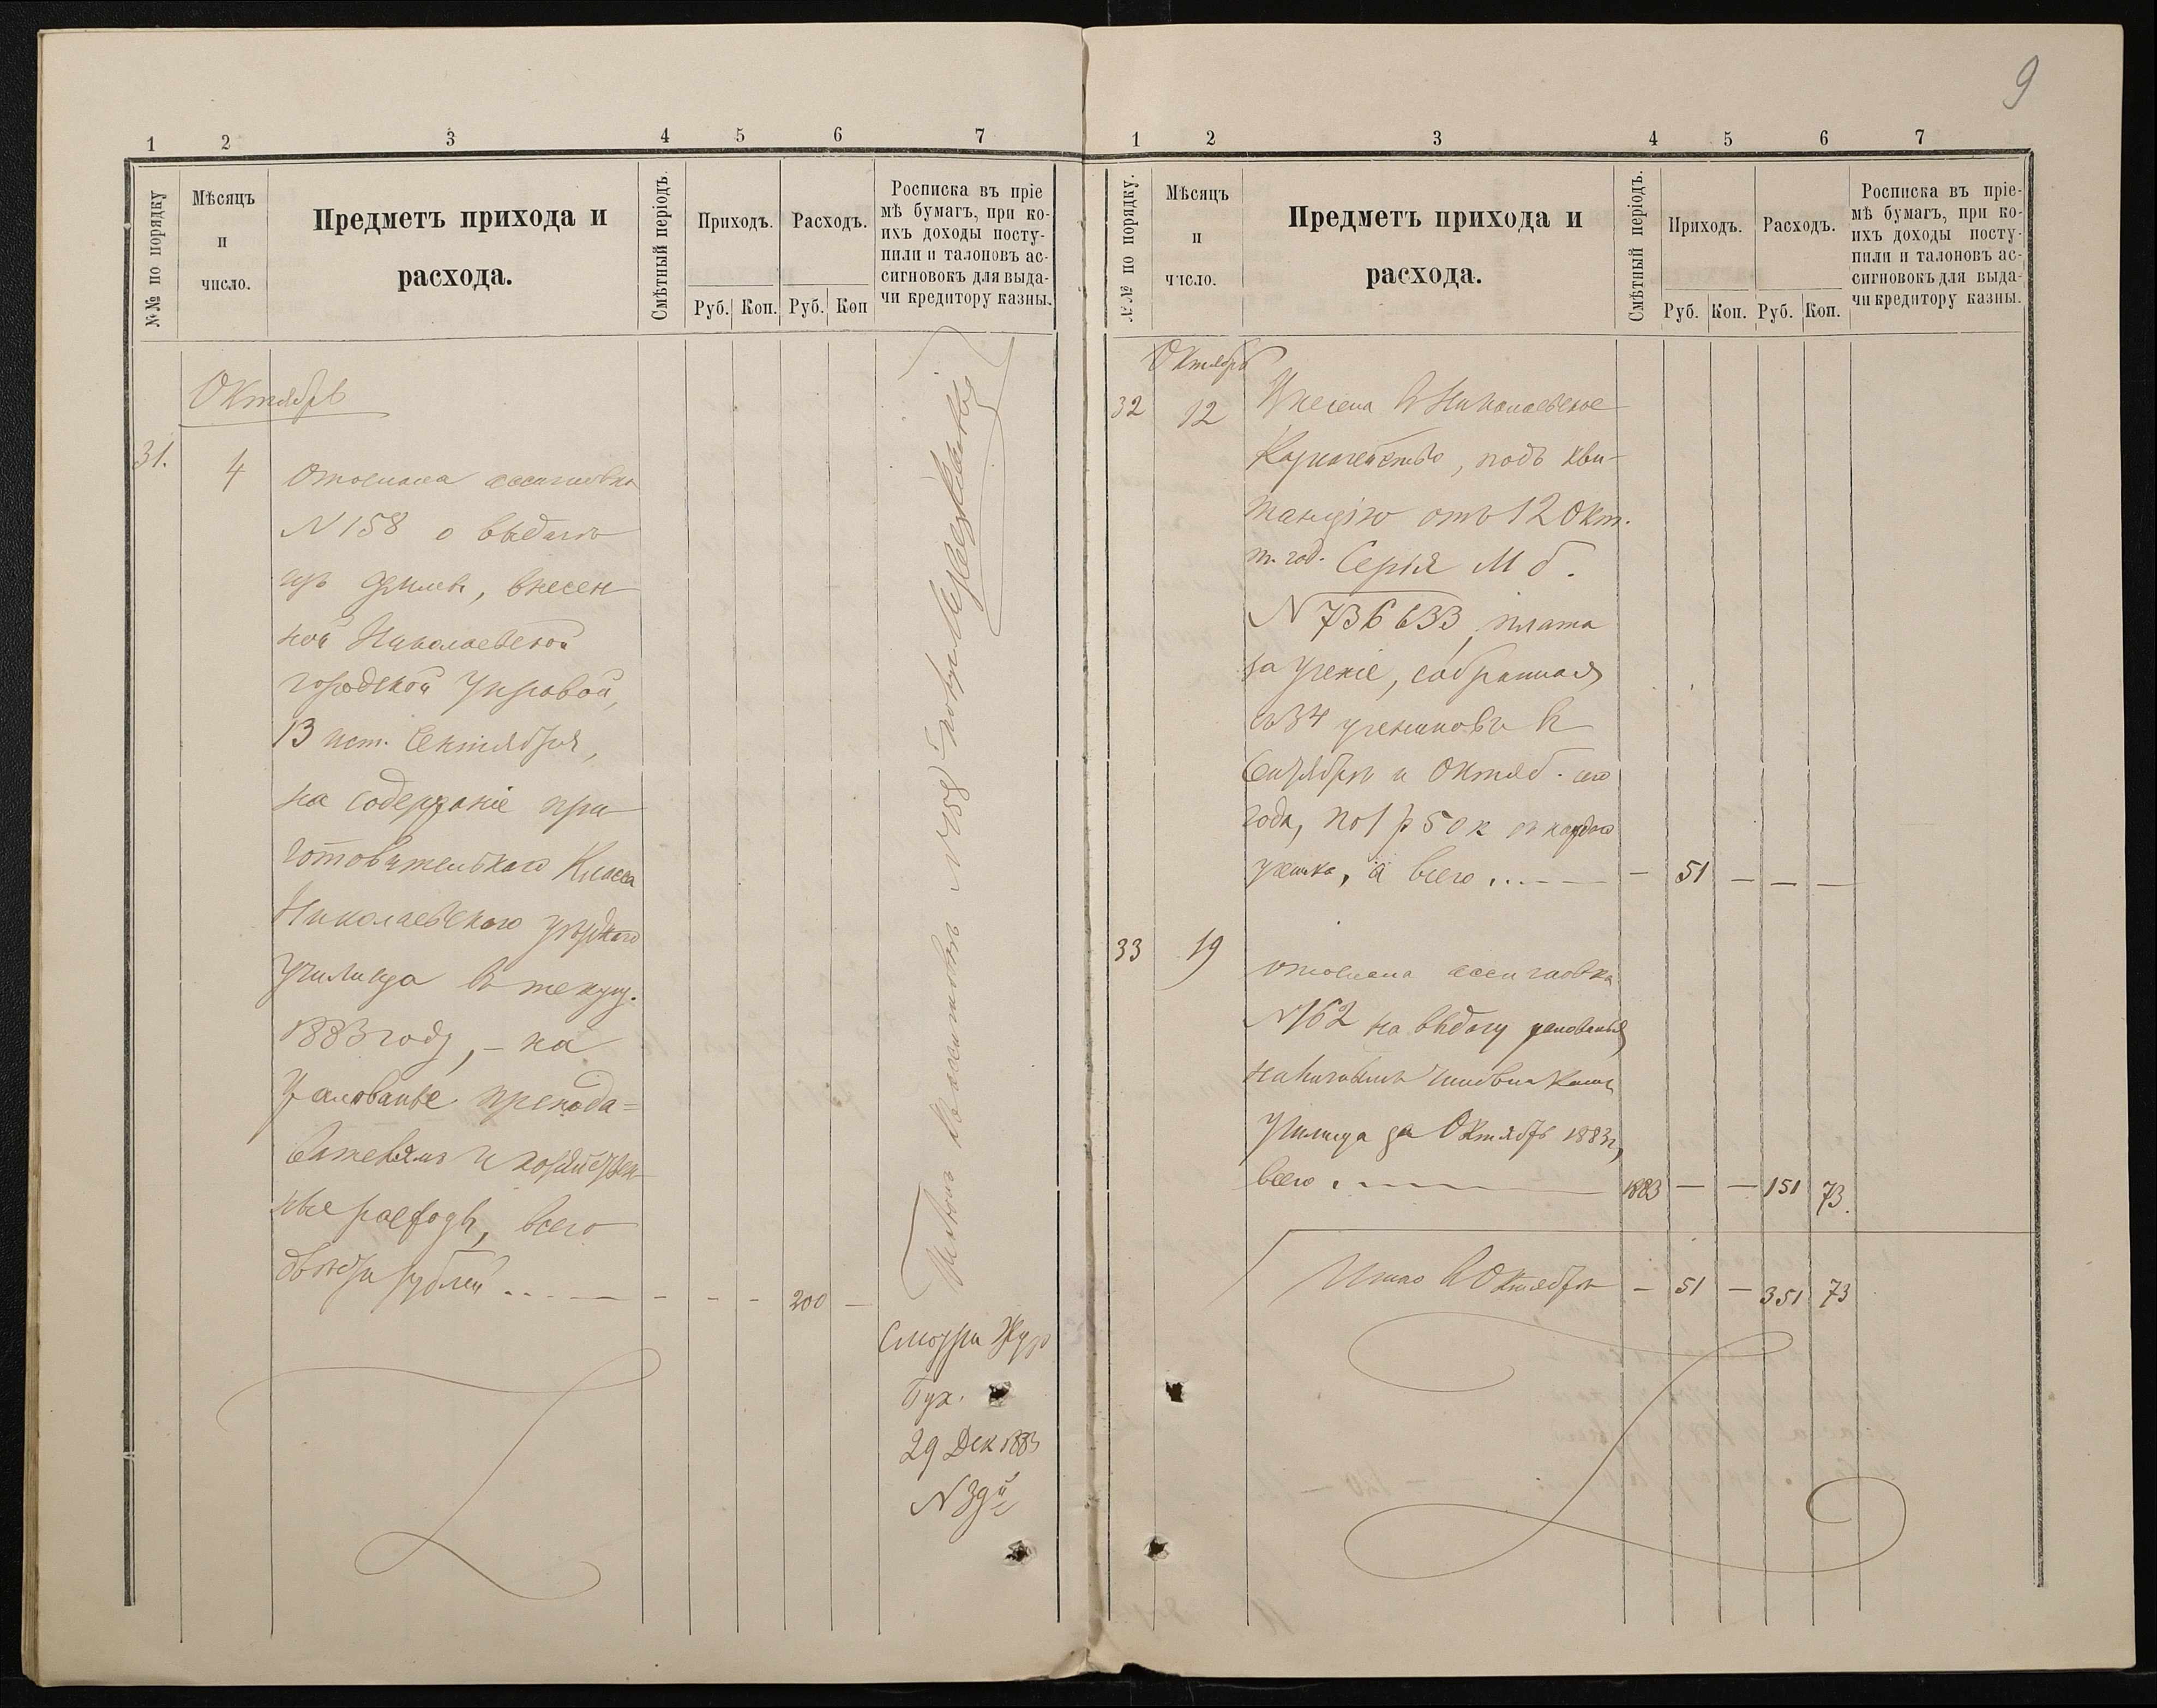 1 2 3 4 5 6 7
№№ по порядку
Мѣсяцъ
и
число.
Предметъ прихода и
расхода.
Смѣтный періодъ.
Приходъ.
Расходъ.
Руб. Коп. Руб. Коп
Росписка въ пріе
мѣ бумагъ, при ко-
ихъ доходы посту-
пили и талоновъ ас-
сигновокъ для выда-
чи кредитору казны.
Октябрь
31. 4
Отослана ассигновка
N 158 о выдачѣ
изъ суммы, внесен
ной Николаевской
городской Управой,
13 ист. Сентября,
на содержаніе при
готовительнаго Класса
Николаевскаго уѣзднаго
Училища въ текущ.
1883 году, – на
Жалованье препода=
вателямъ и хозяйствен
ные расходы, всего
двѣсти рублей . . . — — - - - 200 —
Талонъ къ ассигновкѣ N 158 получ.
Смотри Жур
Тух.
29 Дек 1883
N 39й
9
1 2 3 4 5 6 7
№№ по порядку.
Мѣсяцъ
и
число.
Предметъ прихода и
расхода.
Смѣтный періодъ.
Приходъ.
Расходъ.
Руб. Коп. Руб. Коп.
Росписка въ пріе-
мѣ бумагъ, при ко-
ихъ доходы посту-
пили и талоновъ ас-
сигновокъ для выда-
чи кредитору казны.
Октябрь
32 12 Внесена въ Николаевское
Казначейство, подъ кви-
танцію отъ 12 Окт.
т. год. Серія М б.
N 736633, плата
за ученіе, собранная
съ 34 учениковъ въ
Сентябрѣ и Октяб. сего
года, по 1 р 50 к съ каждаго
учника, а всего . . . — — - 51 — — —
33 19
отослана ассигновка
N 162 на выдачу жалованья
наличнымъ чиновникамъ
Училища за Октябрь 1883 г,
всего . — — 1883 — — 151 73.
Итого въ Октябрѣ - 51 — 351 73